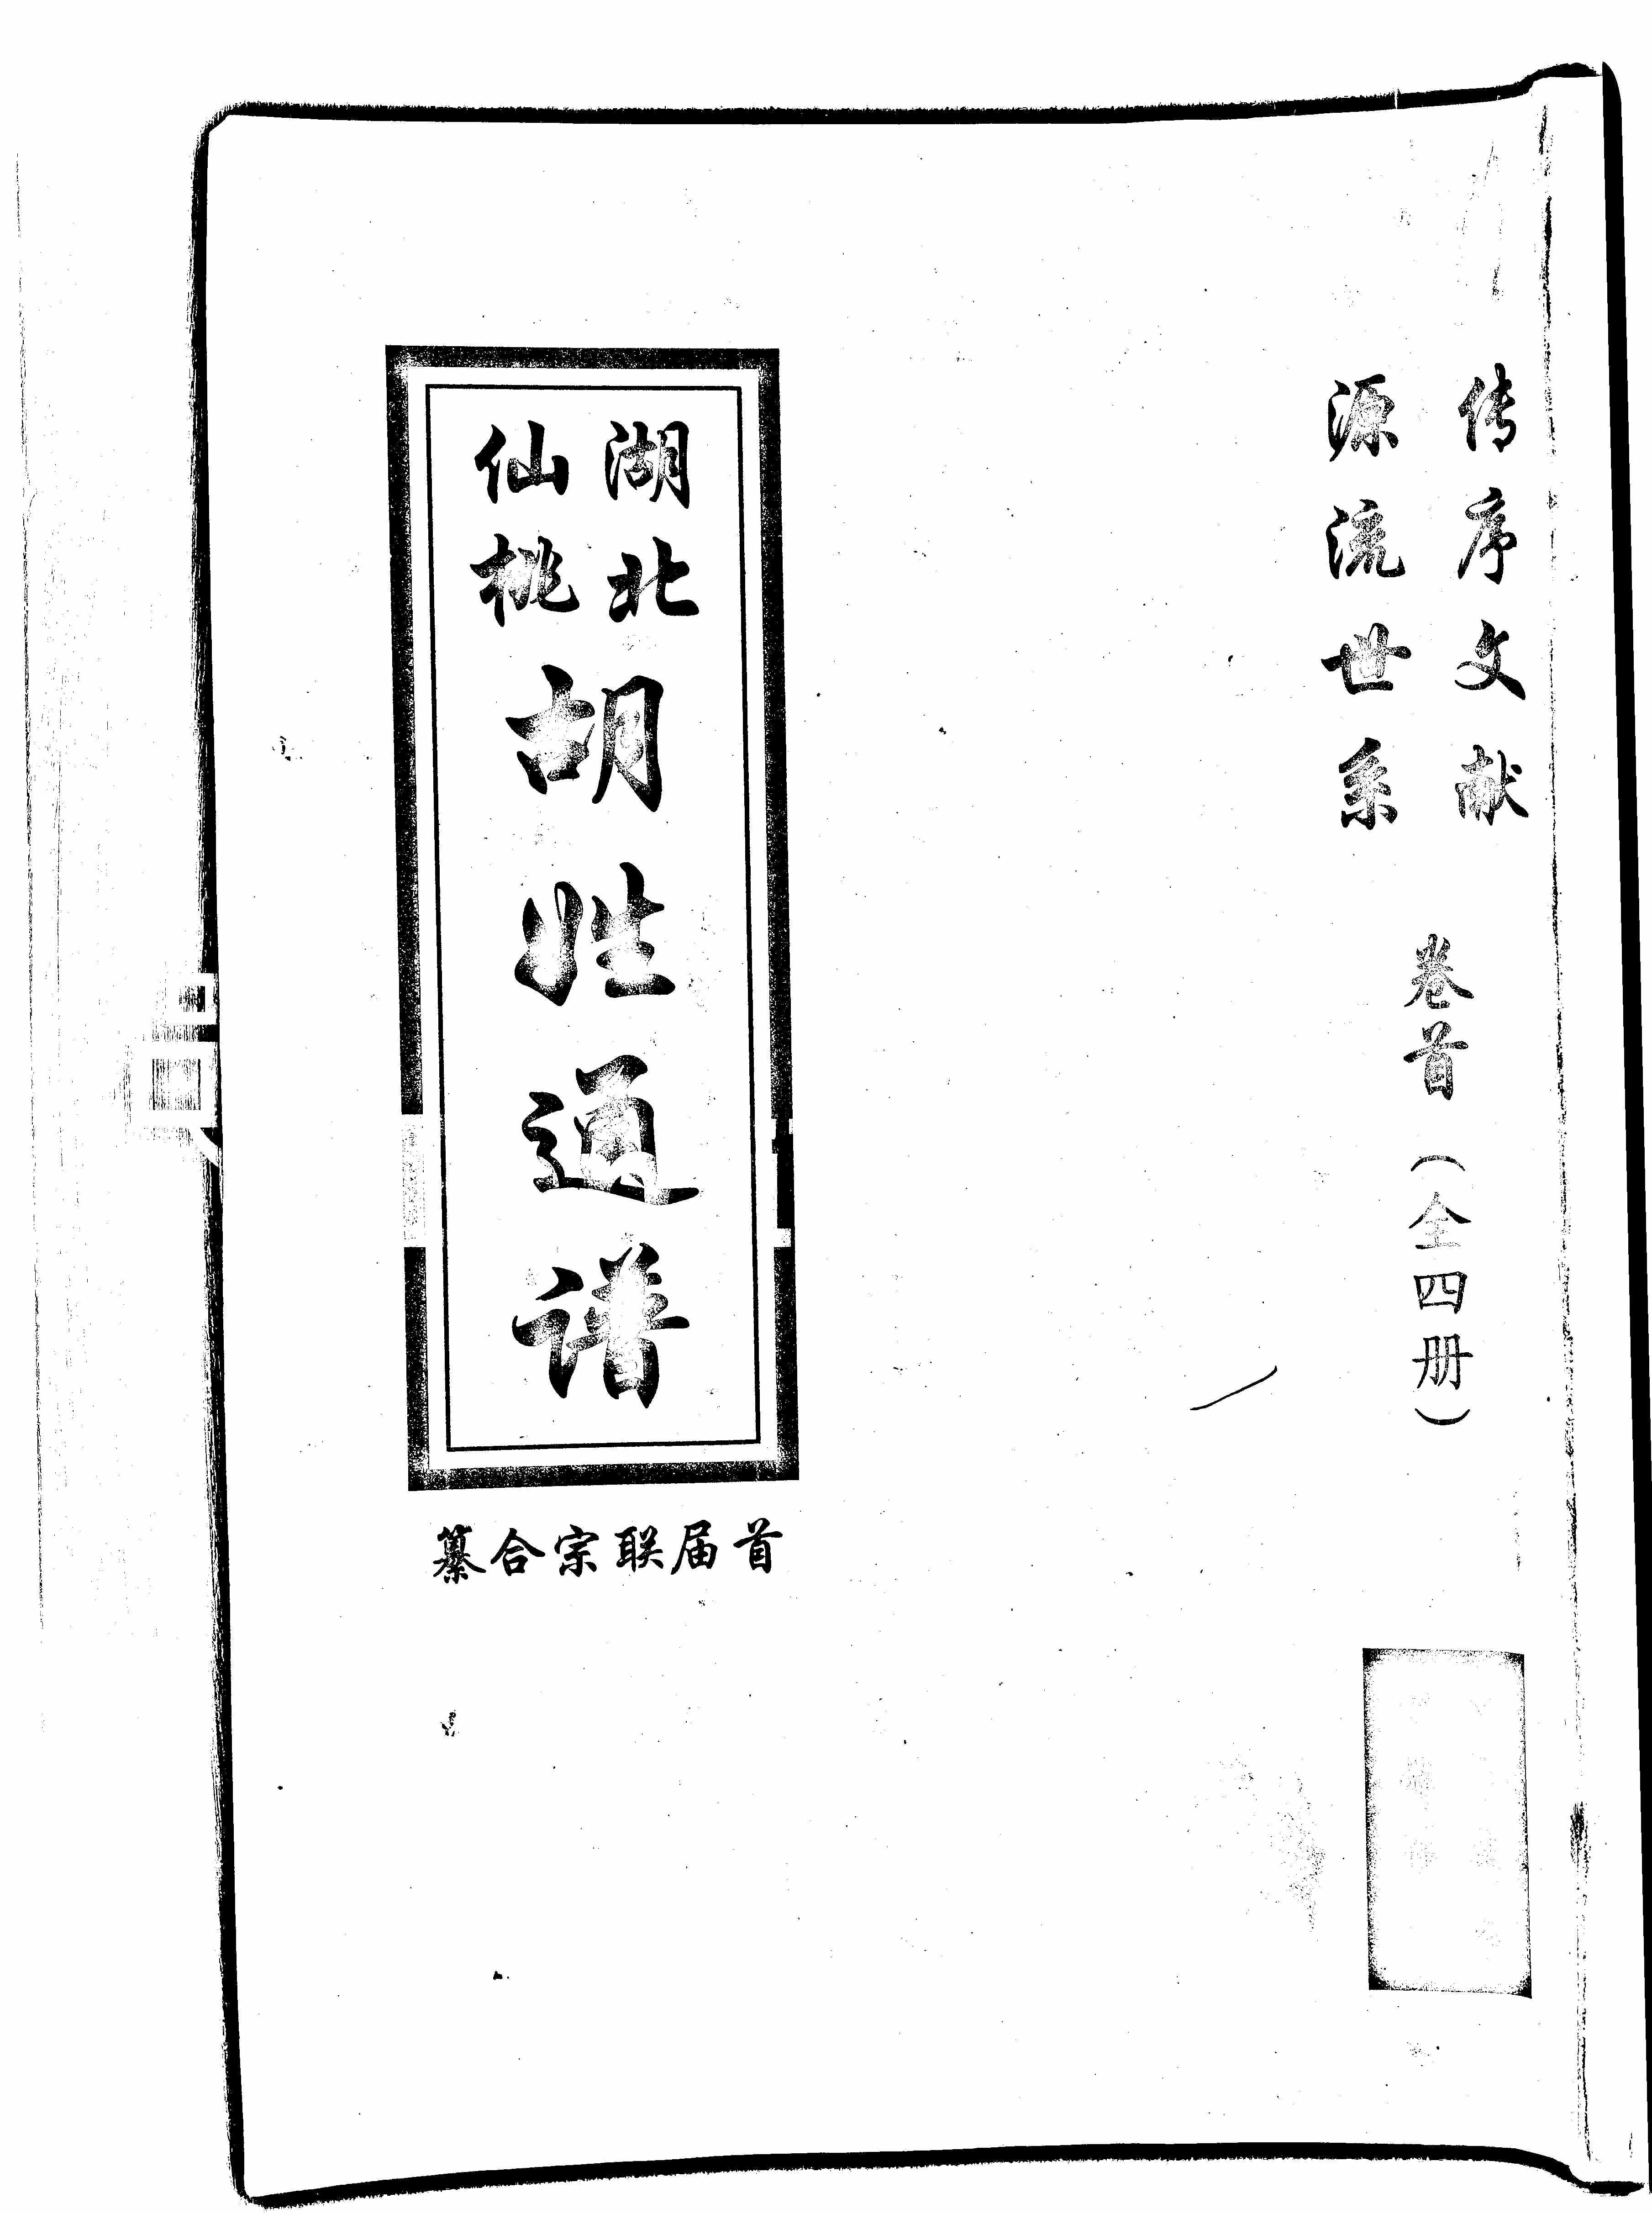 传序文献
源流世系
卷首（全四册）
湖北
仙桃
胡姓通谱
首届联宗合纂